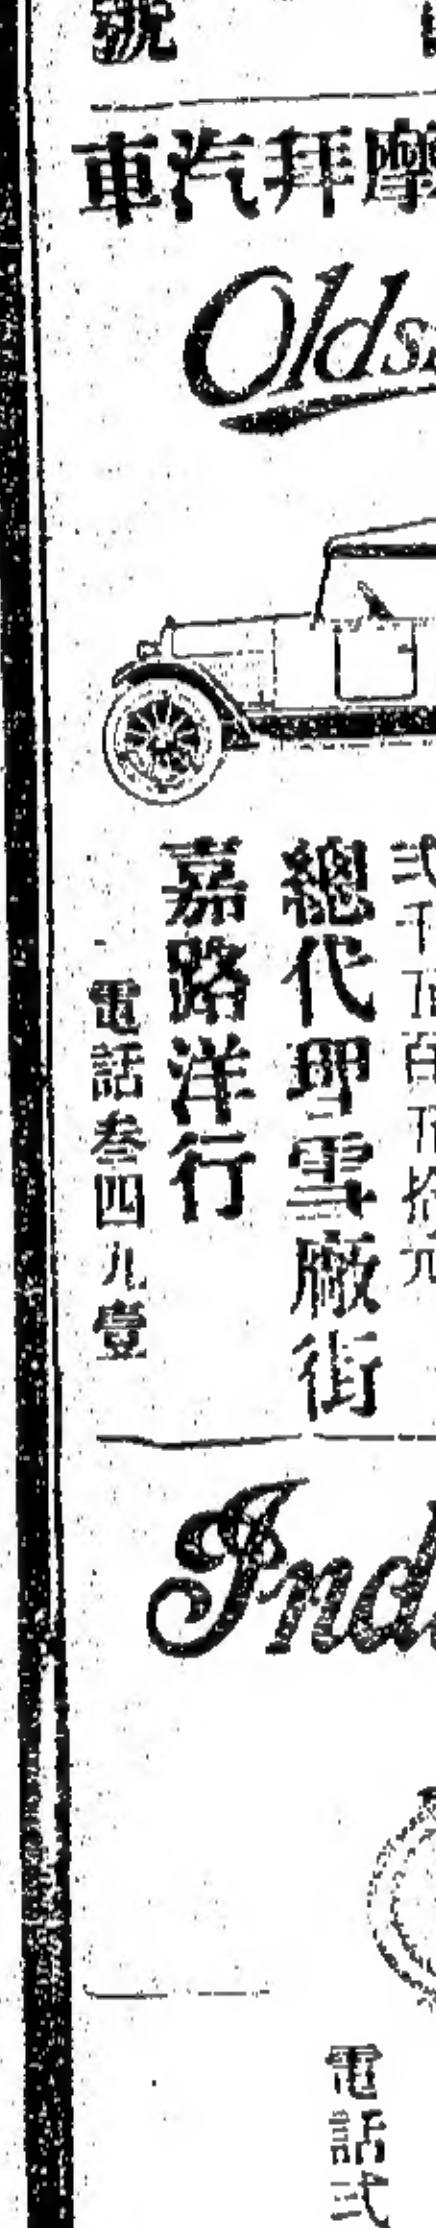 號
摩拜汽車
Olds
弍千五百五拾元
總代理雪廠街
嘉路洋行
電話叁四九壹
Ind
電話